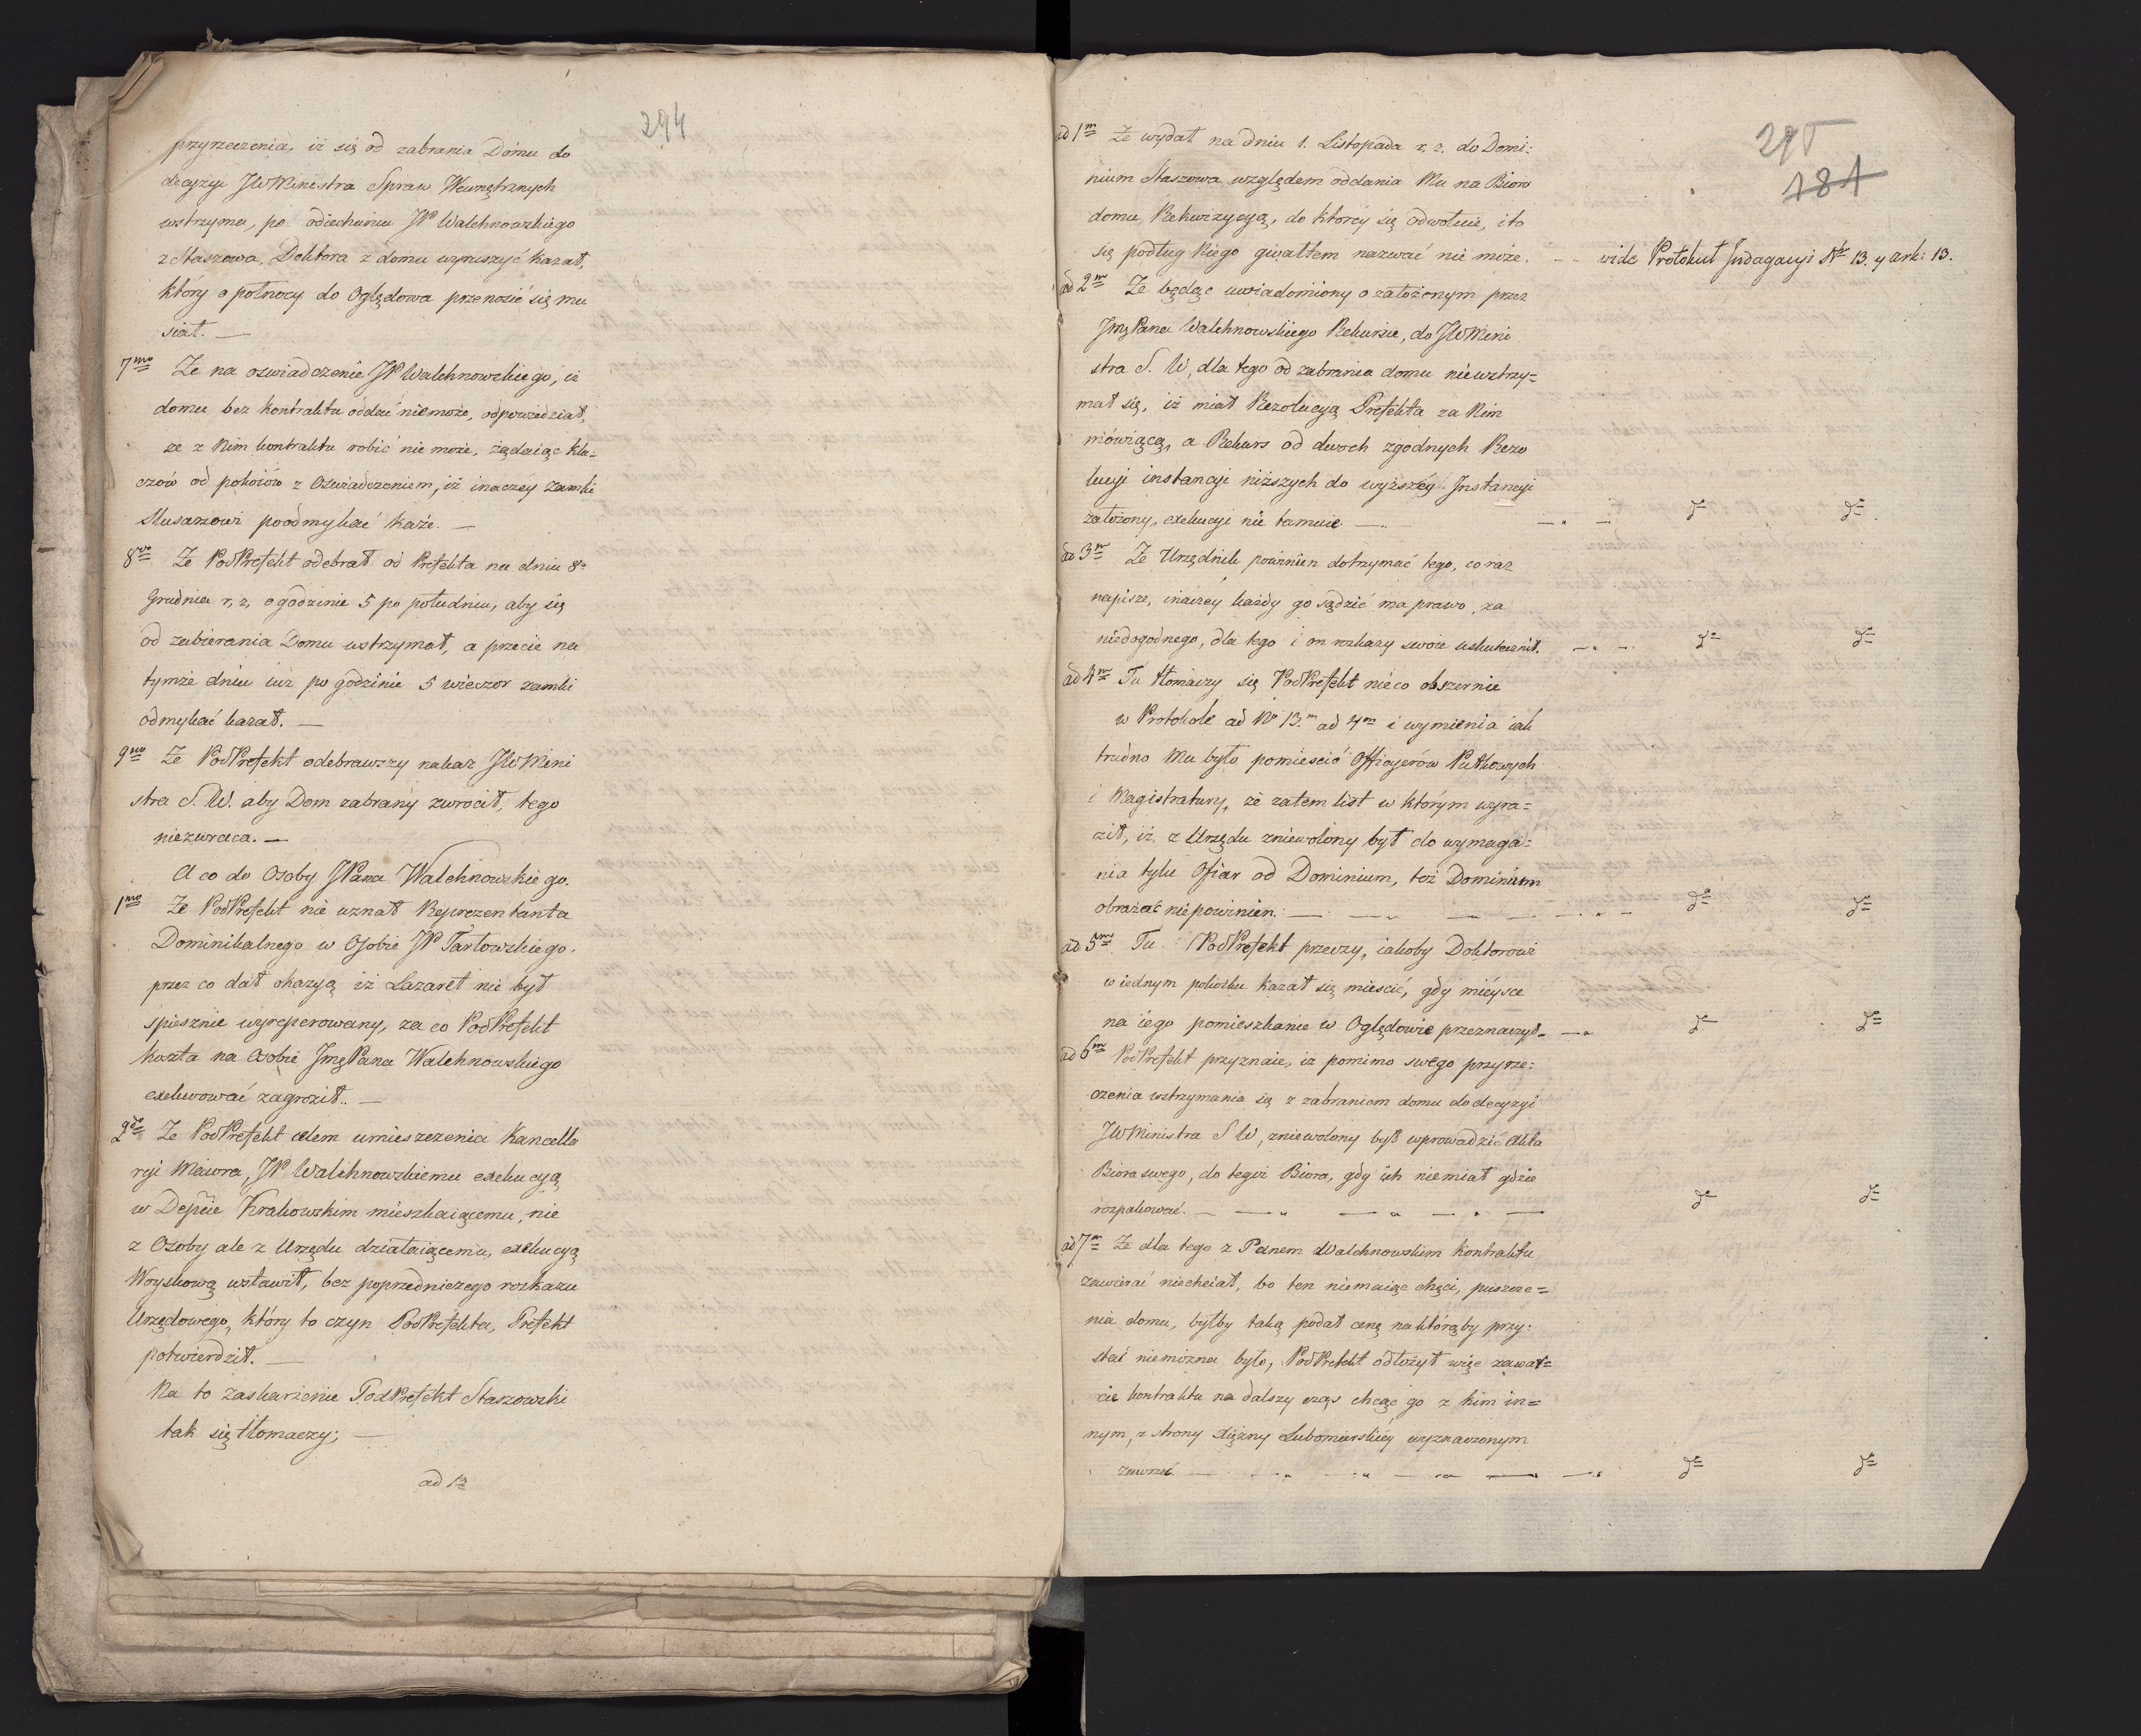 294
przyrzeczenia, iż się od zabrania Domu do
decyzyi JWMinistra Spraw Wewnętrznych
wstrzyma, po odiechaniu JP Walchnowskiego
z Staszowa, Doktora z domu wyruszyć kazał,
który o połnocy do Oględowa przenosić się mu
siał. —
7mo Że na oswiadczenie JP Walchnowskiego, iż
domu bez kontraktu oddać niemoże, odpowiedział,
że z Nim kontraktu robić nie może, żądaiąc klu=
czów od pokoiów z Oswiadczeniem, iż inaczey zamki
Slusarzowi poodmykać każe. —
8vo Że PodPrefekt odebrał od Prefekta na dniu 8o
Grudnia r, z, o godzinie 5 po południu, aby się
od zabierania Domu wstrzymał, a przecie na
tymże dniu iuż po godzinie 5 wieczor zamki
odmykać kazał. —
9no Że PodPrefekt odebrawszy nakaz JWMini
stra S. W. aby Dom zabrany zwrocił, tego
niezwraca. —
A co do Osoby JPana Walchnowskiego.
1mo Że PodPrefekt nie uznał Reprezentanta
Dominikalnego w Osobie JP Tarłowskiego.
przez co dał okazyą iż Lazaret nie był
spiesznie wyreperowany, za co PodPrefekt
koszta na Osobie JmęPana Walchnowskiego
exekwować zagroził. —
2do Że PodPrefekt celem umieszczenia Kancella
ryi Maiora, JP Walchnowskiemu exekucyą
w Depcie Krakowskim mieszkaiącemu, nie
z Osoby ale z Urzędu działaiącemu, exekucyą
Woyskową wstawił, bez poprzedniczego rozkazu
Urzędowego, który to czyn PodPrefekta, Prefekt
potwierdził. —
Na to zaskarżenie PodPrefekt Staszowski
tak się tłomaczy; —
ad 1m
295
181
ad 1m Że wydał na dniu 1. Listopada r. z. do Domi:
nium Staszowa względem oddania Mu na Bioro
domu, Rekwizycyą, do którey się odwołuie, i to
się podług Niego gwałtem nazwać nie może. — wide Protokuł Indagacyi No 13. y ark: 13.
ad 2m Że będąc uwiadomiony o założonym przez
JmęPana Walchnowskiego Rekursie, do JWMini
stra S. W, dla tego od zabrania domu niewstrzy=
mał się, iż miał Rezolucyą Prefekta za Nim
mówiącą, a Rekurs od dwoch zgodnych Rezo
lucyi instancyi niższych do wyższéy Instancyi
założony, exekucyi nie tamuie. —
ad 3m Że Urzędnik powinien dotrzymać tego, co raz
napisze, inaczey każdy go sądzić ma prawo, za
niedogodnego, dla tego i on rozkazy swoie uskutecznił.
ad 4m Tu tłomaczy się PodPrefekt nieco obszernie
w Protokole ad No 13.m ad 4m i wymienia iak
trudno Mu było pomieścić Officyerów Pułkowych
i Magistratury, że zatem list w którym wyra=
ził, iż z Urzędu zniewolony był do wymaga=
nia tylu Ofiar od Dominium, toż Dominium
obrażać niepowinien. —
ad 5m Tu PodPrefekt przeczy, iakoby Doktorowi
w iednym pokoiku kazał się mieścić, gdy mieysce
na iego pomieszkanie w Oględowie przeznaczył. —
ad 6m PodPrefekt przyznaie, iż pomimo swego przyrze:
czenia wstrzymania się z zabraniem domu do decyzyi
JWMinistra S W, zniewolony był wprowadzić Akta
Biora swego, do tegoż Biora, gdy ich niemiał gdzie
rozpakować. —
ad 7m Że dla tego z Panem Walchnowskim kontraktu
zawierać niechciał, bo ten niemaiąc chęci, puszcze=
nia domu, byłby taką podał cenę na którąby przy:
stać niemożna było, PodPrefekt odłożył więc zawar=
cie kontraktu na dalszy czas chcąc go z kim in=
nym, z strony Xiężny Lubomirskiéy wyznaczonym
zawrzeć. —